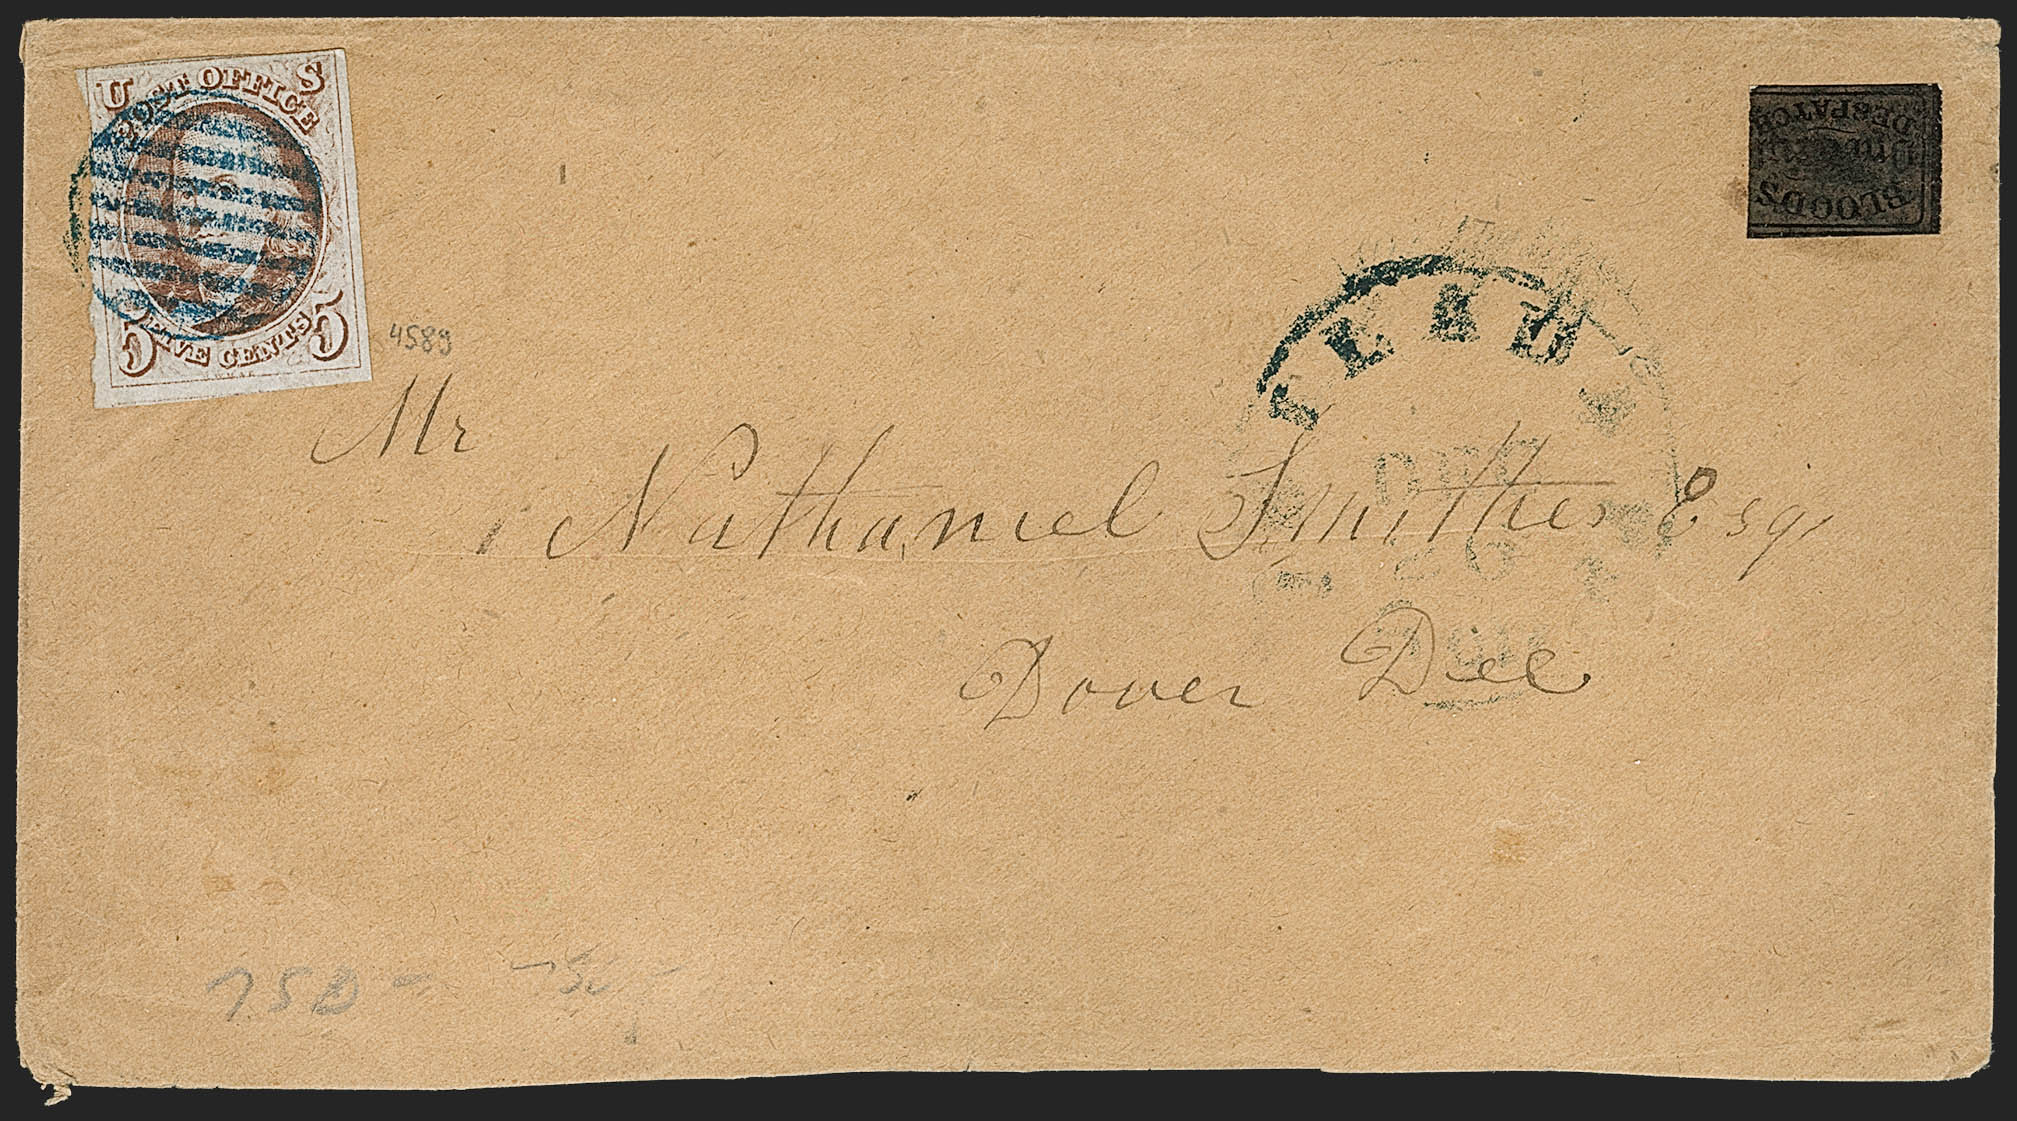 U S
POST OFFICE
FIVE CENTS
5 5
BLOOD'S
DESPATCH
4589
Mr
Nathaniel Smithers Esq
Dover Del
DEC
26